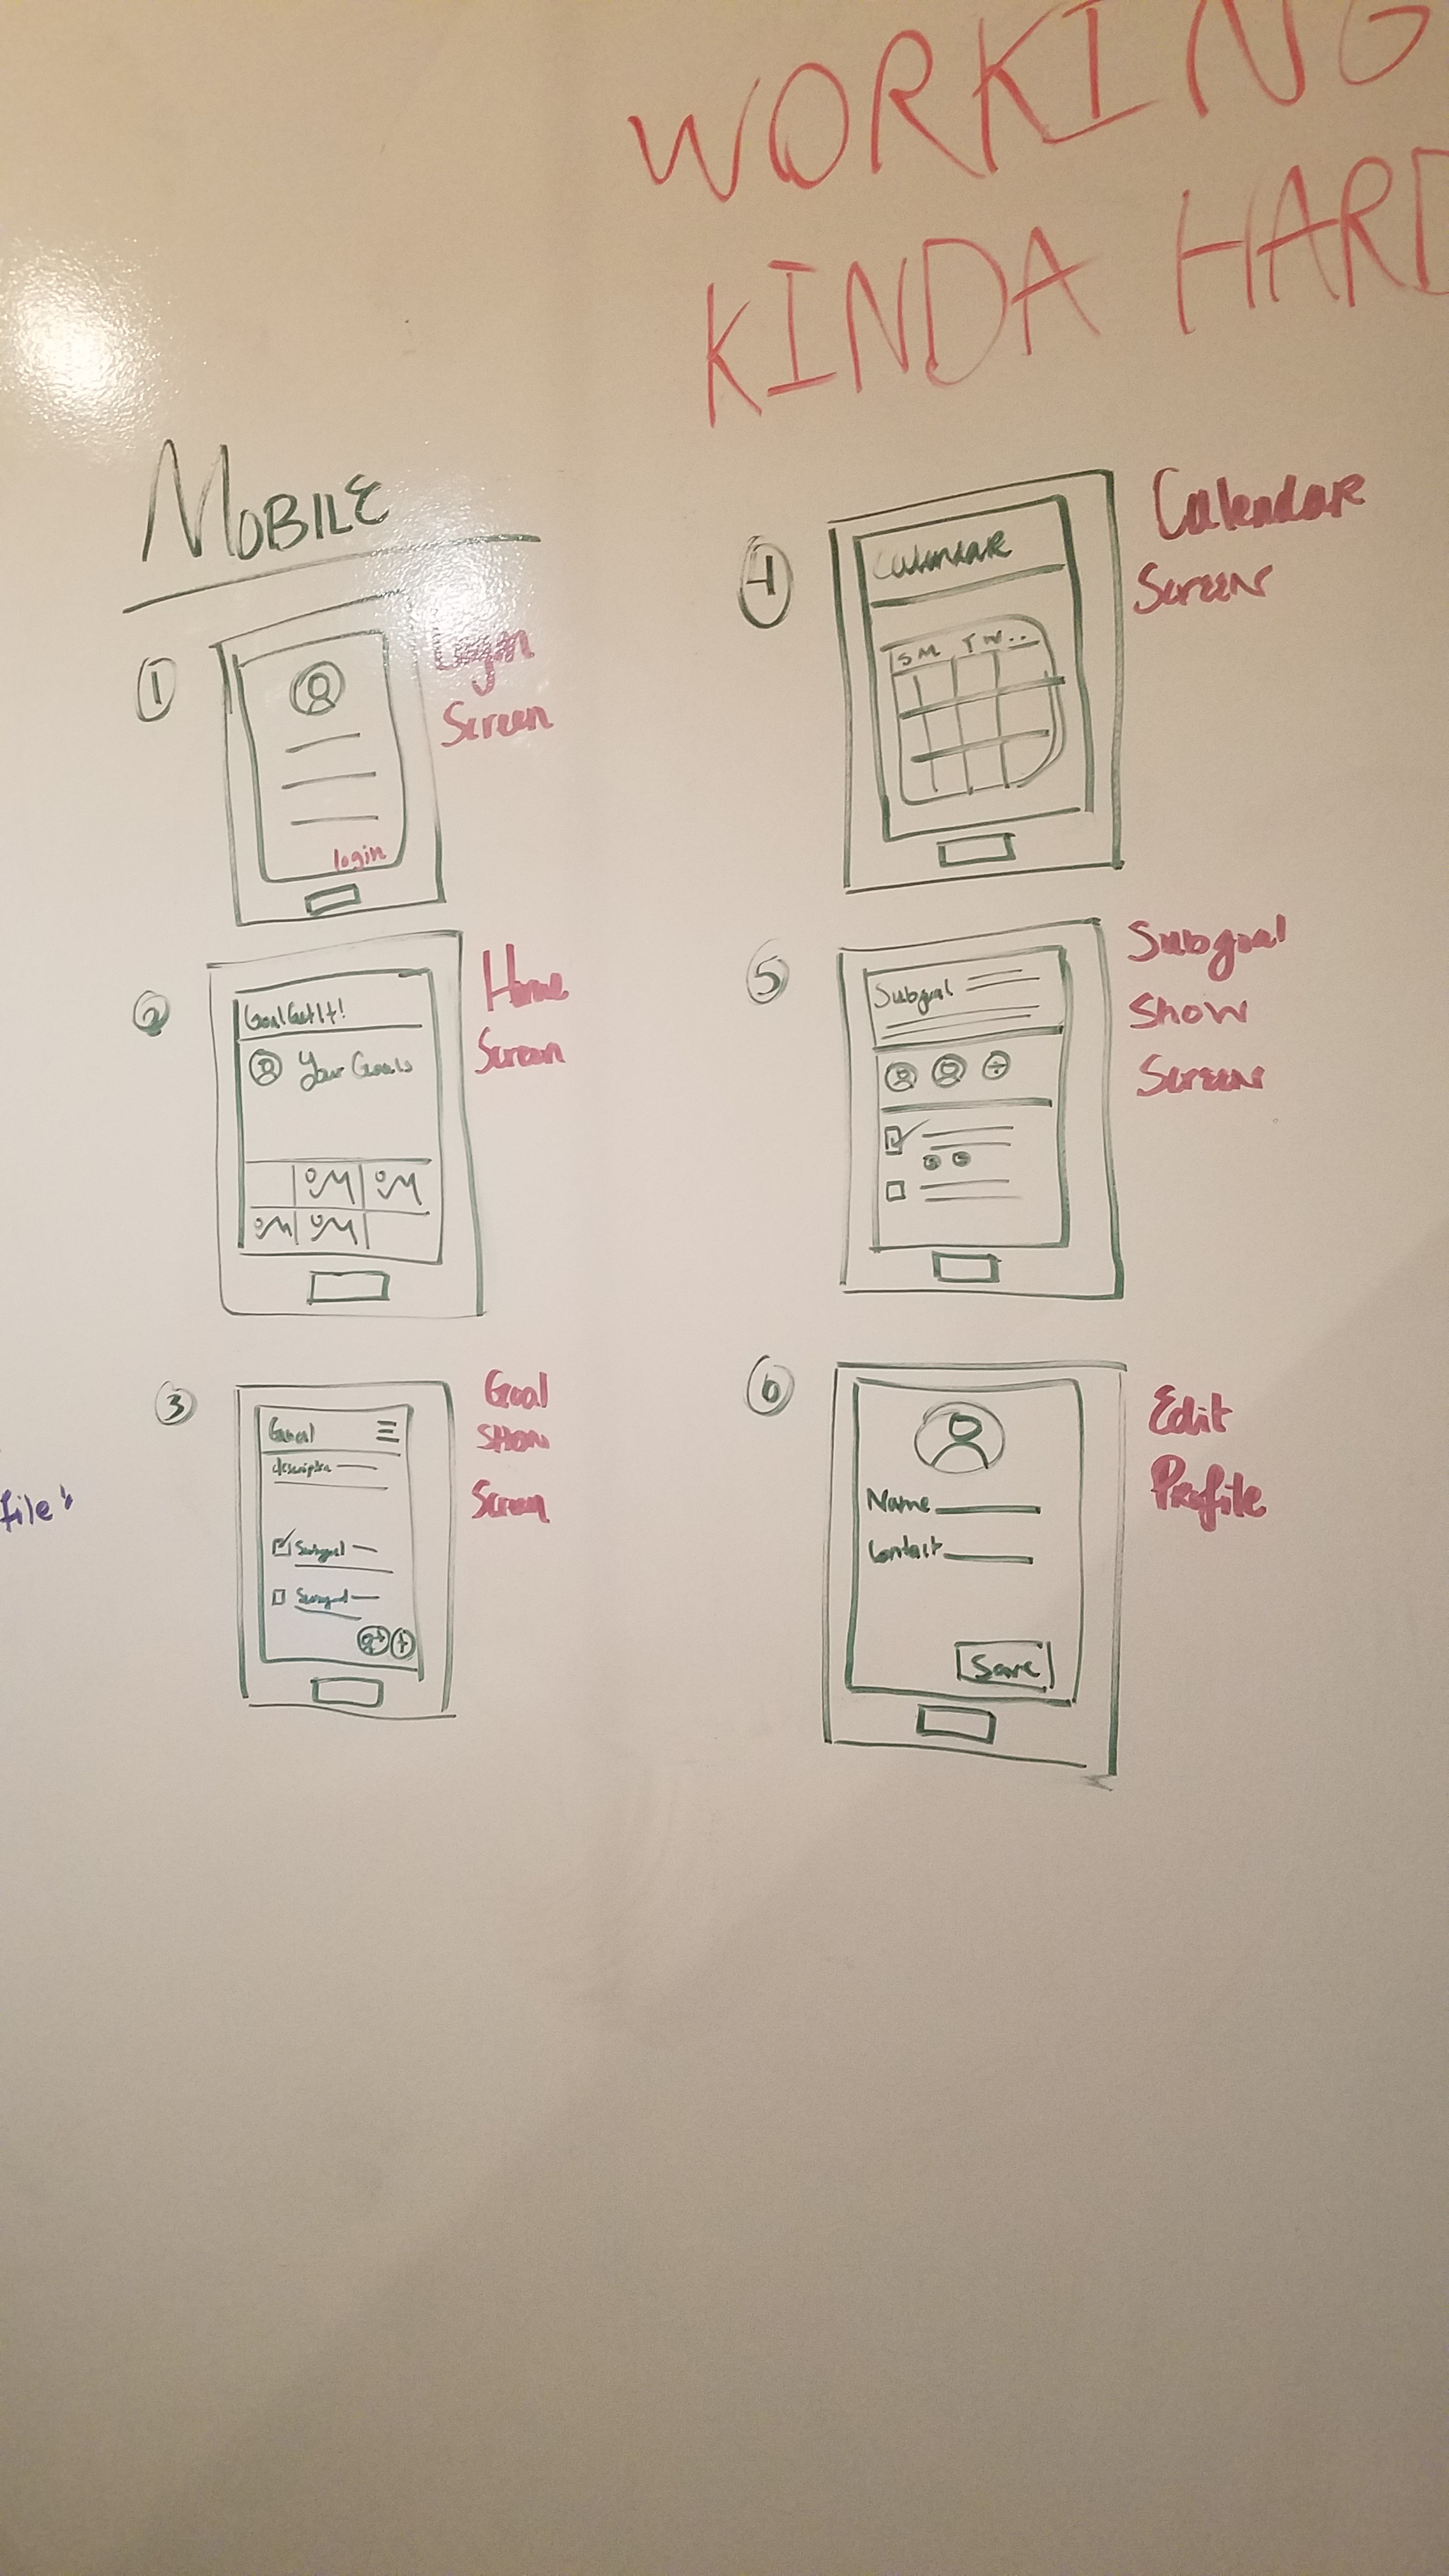 WORKING
KINDA HARD
MOBILE
1
Login
Screen
login
2
Home
Screen
Goal Get It!
Your Goals
3
Goal
Show
Screen
Goal
description
Subgoal
Subgoal
4
Calendar
Screen
Calendar
S M T W ..
5
Subgoal
Show
Screen
Subgoal
6
Edit
Profile
Name
Contact
Save
file